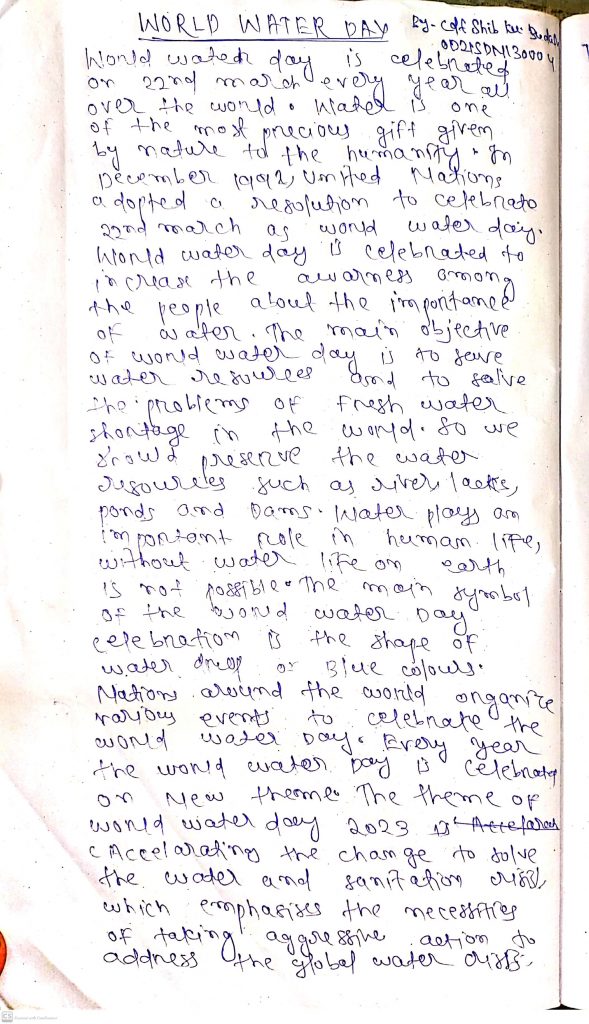 WORLD WATER DAY
By- cdt Shib
OD21SDN130004
World water day is celebrated
on 22nd march every year all
over the world. Water is one
of the most precious gift given
by nature to the humanity. In
December 1992, United Nations
adopted a resolution to celebrate
22nd march as world water day.
World water day is celebrated to
increase the awarness among
the people about the importance
of water. The main objective
of world water day is to serve
water resources and to solve
the problems of fresh water
shortage in the world. So we
should preserve the water
resources such as river, lacke,
ponds and Dams. Water plays an
important role in human life,
without water life on earth
is not possible. The main symbol
of the world water Day
celebration is the shape of
water drop or Blue colours.
Nations around the world organize
various events to celebrate the
world water Day. Every year
the world water Day is celebrated
on New theme. The theme of
world water day 2023 is "Accelarati
( Accelarating the change to solve
the water and sanitation crisis,
which emphasises the necessities
of taking aggressive action to
address the global water crisis.
CS